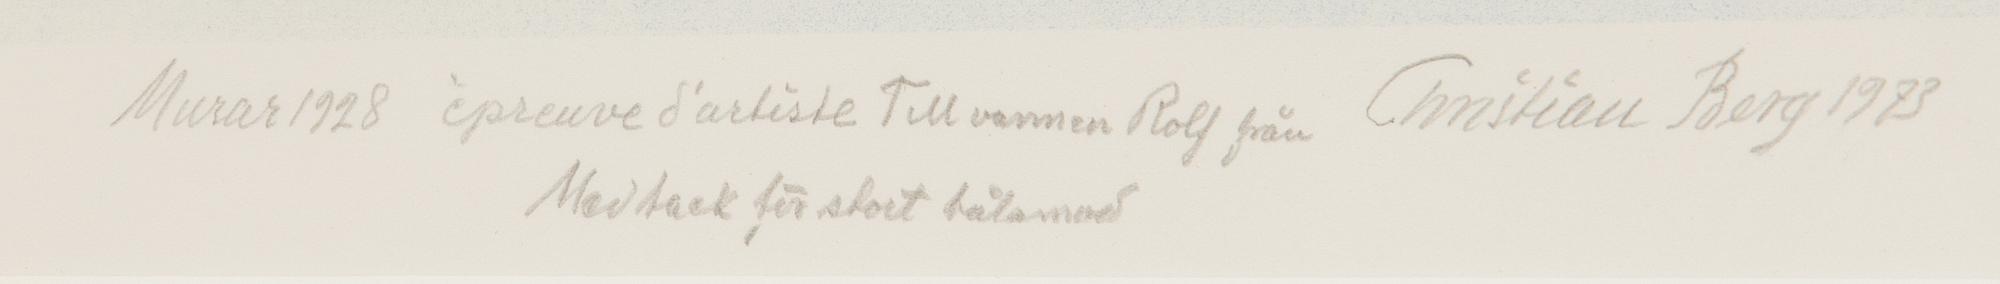 Murar 1928 èpreuve d'artiste Till vännen Rolf från Christian Berg 1973
Med tack för stort tålamod